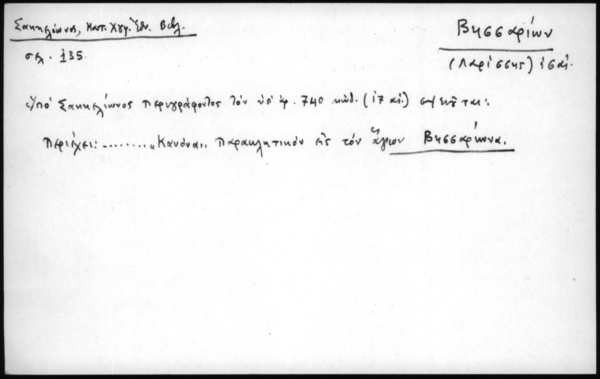 Σακκελίωνος, Κατ. Χγφ. Ἐθν. Βιβλ.
σελ. 135.
Βησσαρίων
(Λαρίσσης) ἱσαί.
Ὑπό Σακκελίωνος περιγράφοντος τόν ὑπ' ἀρ. 740 κώδ. (17 αἰ.) σημειοῦται:
Περιέχει: ........ „Κανόνα„ Παρακλητικόν εἰς τόν ἅγιον Βησσαρίωνα.